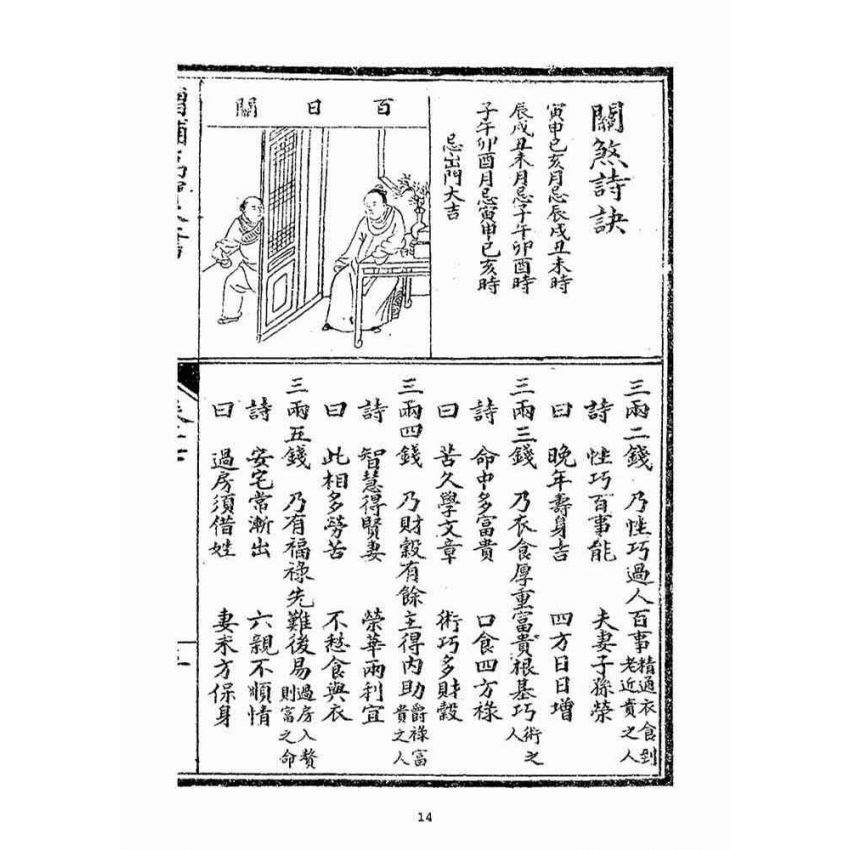 關煞詩訣
寅申巳亥月忌辰戌丑未時
辰戌丑未月忌子午卯酉時
子午卯酉月忌寅申巳亥時
忌出門大吉
百日關
三兩二錢 乃性巧過人百事精通衣食到老近貴之人
詩 性巧百事能 夫妻子孫榮
曰 晚年壽身吉 四方日日增
三兩三錢 乃衣食厚重富貴根基巧術之人
詩 命中多富貴 口食四方祿
曰 苦久學文章 術巧多財穀
三兩四錢 乃財穀有餘主得內助爵祿富貴之人
詩 智慧得賢妻 榮華兩利宜
曰 此相多勞苦 不愁食與衣
三兩五錢 乃有福祿先難後易過房入贅則富之命
詩 安宅常漸出 六親不順情
曰 過房須借姓 妻來方保身
14